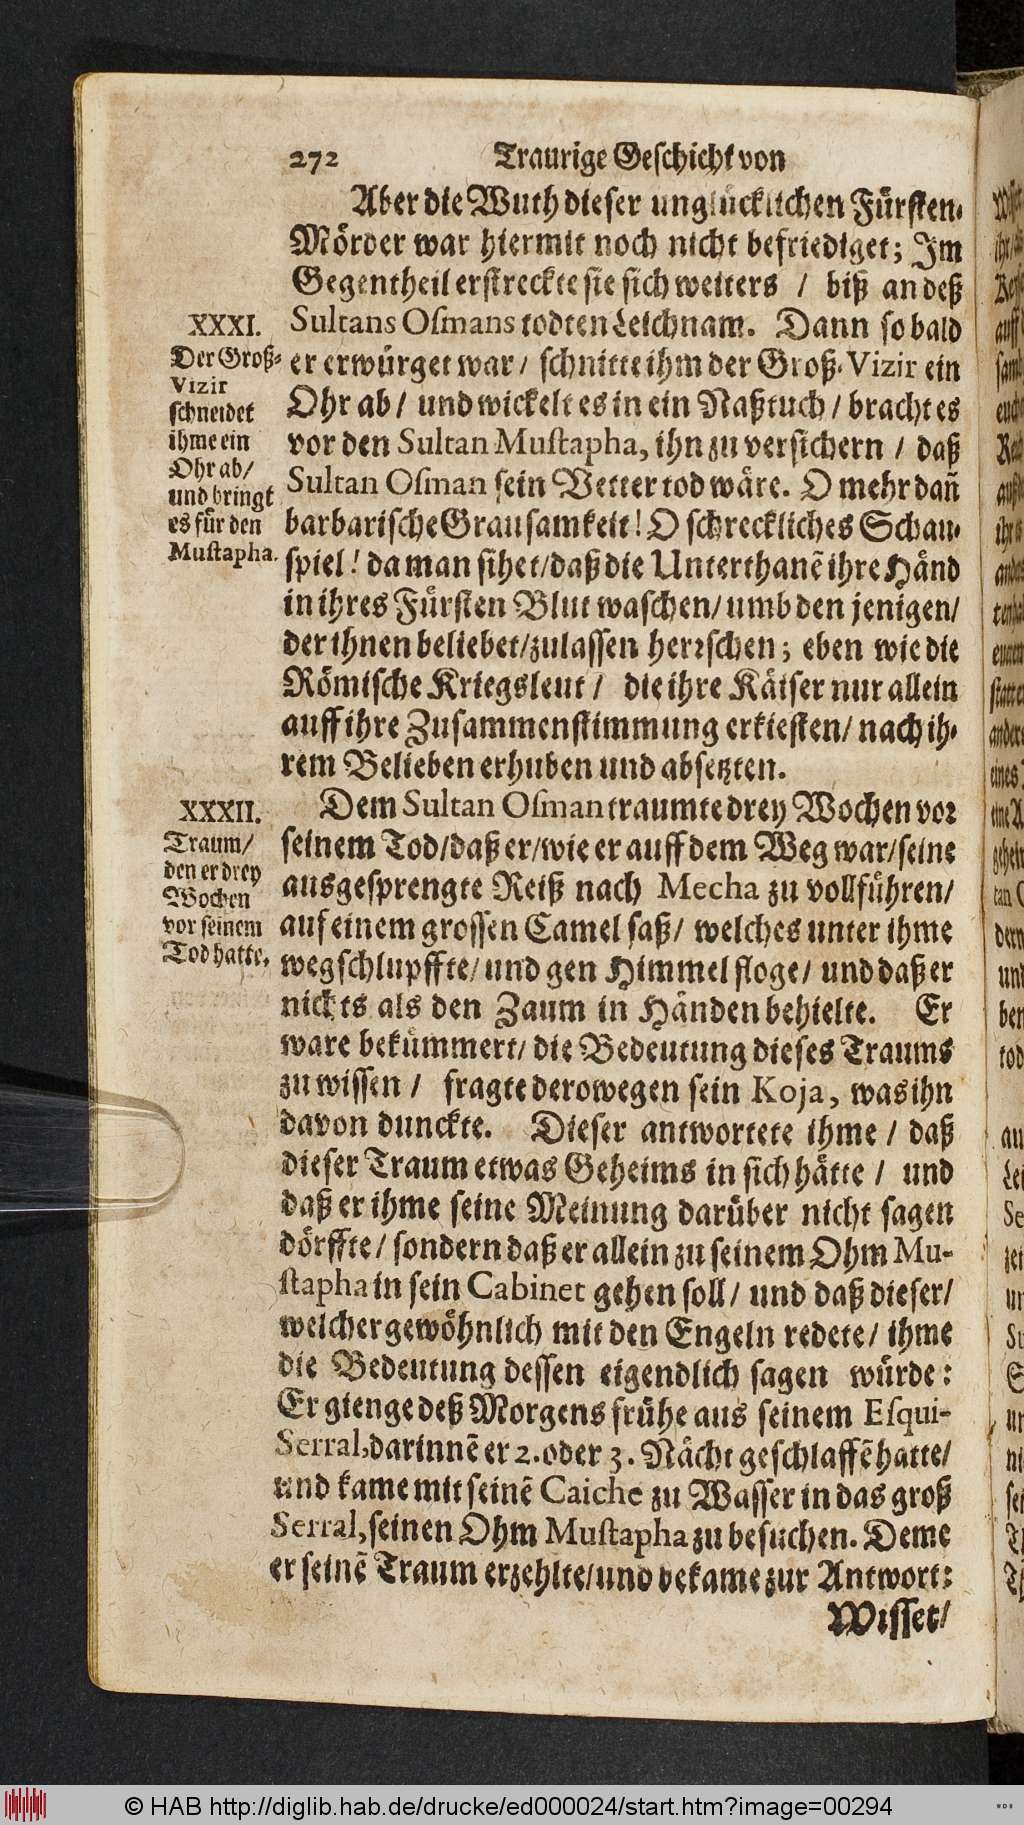 272 Traurige Geschicht von
Aber die Wuth dieser unglücklichen Fürsten-
Mörder war hiermit noch nicht befriediget; Im
Gegentheil erstreckte sie sich weiters / biß an deß
Sultans Osmans todten Leichnam. Dann so bald
er erwürget war / schnitte ihm der Groß-Vizir ein
Ohr ab / und wickelt es in ein Naßtuch / bracht es
vor den Sultan Mustapha, ihn zu versichern / daß
Sultan Osman sein Vetter tod wäre. O mehr dañ
barbarische Grausamkeit! O schreckliches Schau-
spiel! da man sihet/ daß die Unterthanē ihre Händ
in ihres Fürsten Blut waschen/ umb den jenigen/
der ihnen beliebet/ zulassen herrschen; eben wie die
Römische Kriegsleut / die ihre Käiser nur allein
auff ihre Zusammenstimmung erkiesten/ nach ih-
rem Belieben erhuben und absetzten.
XXXI.
Der Groß-
Vizir
schneidet
ihme ein
Ohr ab/
und bringt
es für den
Mustapha.
Dem Sultan Osman traumte drey Wochen vor
seinem Tod/ daß er/ wie er auff dem Weg war/ seine
ausgesprengte Reiß nach Mecha zu vollführen/
auf einem grossen Camel saß/ welches unter ihme
wegschlupffte/ und gen Himmel floge/ und daß er
nichts als den Zaum in Händen behielte. Er
ware bekümmert/ die Bedeutung dieses Traums
zu wissen / fragte derowegen sein Koja, was ihn
davon dunckte. Dieser antwortete ihme / daß
dieser Traum etwas Geheims in sich hätte / und
daß er ihme seine Meinung darüber nicht sagen
dörffte/ sondern daß er allein zu seinem Ohm Mu-
stapha in sein Cabinet gehen soll/ und daß dieser/
welcher gewöhnlich mit den Engeln redete/ ihme
die Bedeutung dessen eigendlich sagen würde:
Er gienge deß Morgens frühe aus seinem Esqui-
Serral, darinnē er 2. oder 3. Nächt geschlaffē hatte/
und kame mit seinē Caiche zu Wasser in das groß
Serral, seinen Ohm Mustapha zu besuchen. Deme
er seinē Traum erzehlte/ und bekame zur Antwort:
Wisset/
XXXII.
Traum/
den er drey
Wochen
vor seinem
Tod hatte.
© HAB http://diglib.hab.de/drucke/ed000024/start.htm?image=00294